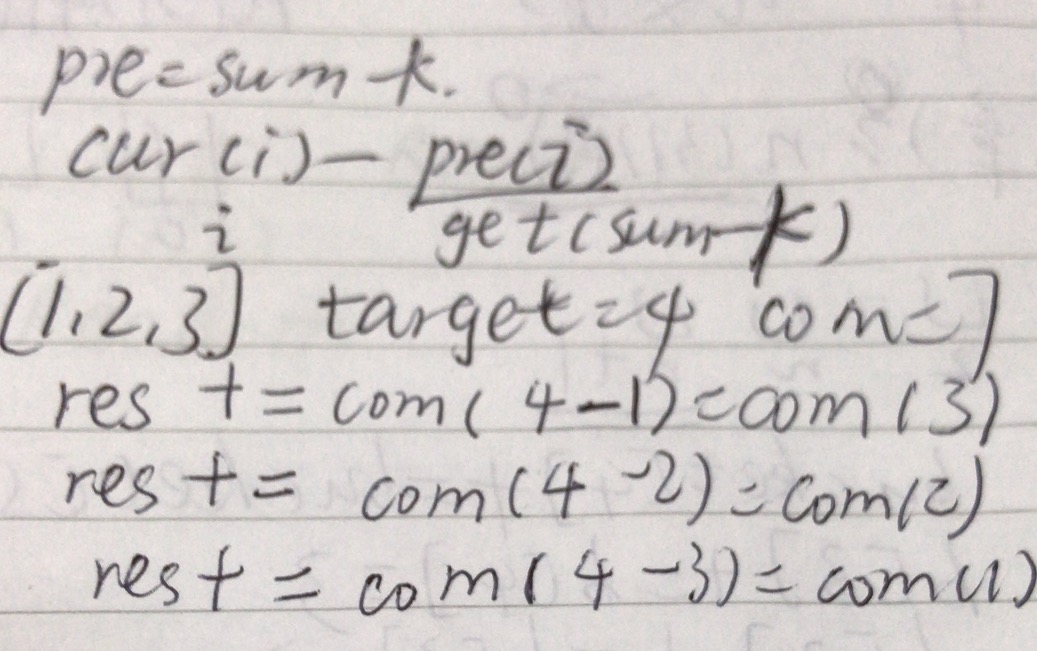 pre = sum - k.
cur(i) - pre(i)
i get(sum-k)
[1,2,3] target = 4 com = 7
res += com(4-1) = com(3)
res += com(4-2) = com(2)
res += com(4-3) = com(1)